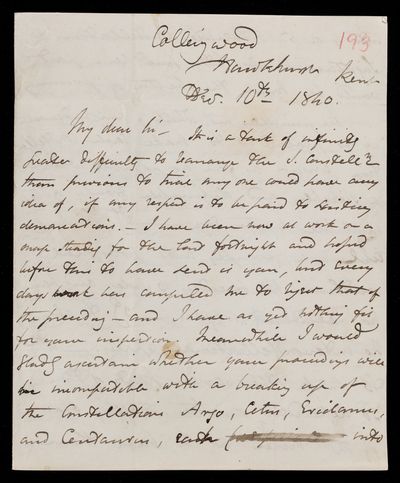 Collingwood
193
Hawkhurst Kent
Dec. 10th 1840.
My dear Sir - It is a task of infinitely
greater difficulty to rearrange the S. Constelln.s
than previous to trial any one could have any
idea of, if any respect is to be paid to existing
demarcations. - I have been now at work on a
map steadily for the last fortnight and hoped
before this to have send it you, and every
day's work has compelled me to reject that of
the preceding - and I have as yet nothing fit
for your inspection. Meanwhile I would
gladly ascertain whether your proceedings will
be incompatible with a breaking up of
the Constellations Argo, Cetus, Eridanus,
and Centaurus, each into